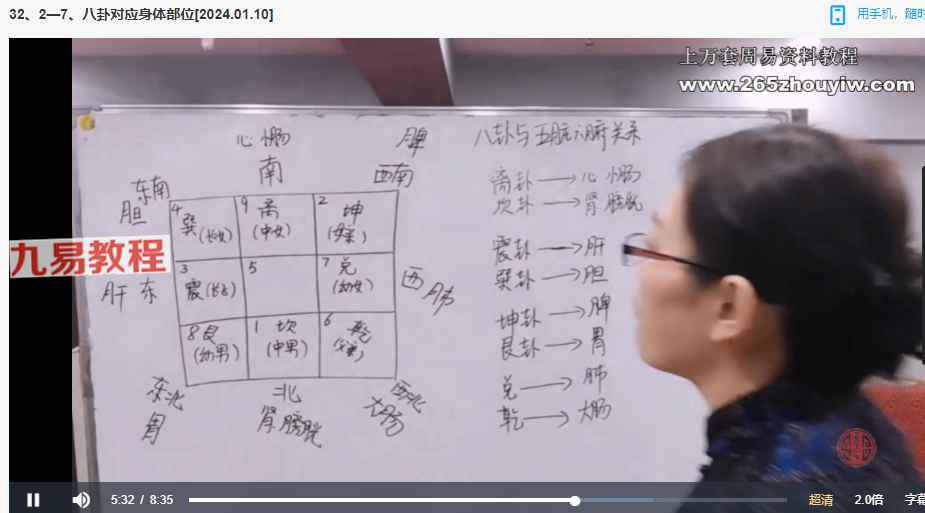 32、2—7、八卦对应身体部位[2024.01.10]
用手机，随时
上万套周易资料教程
www.265zhouyiw.com
九易教程
心 小肠
南
脾
西南
东南
胆
4
巽
(长女)
9
离
(中女)
2
坤
肝 东
3
震(长男)
5
7
兑
(幼女)
西 肺
8 艮
(幼男)
1
坎
(中男)
6
乾
东北
胃
北
肾 膀胱
西北
大肠
八卦与五脏六腑关系
离卦→心 小肠
坎卦→肾 膀胱
震卦→肝
巽卦→胆
坤卦→脾
艮卦→胃
兑→肺
乾→大肠
5:32 / 8:35
超清
2.0倍
字幕